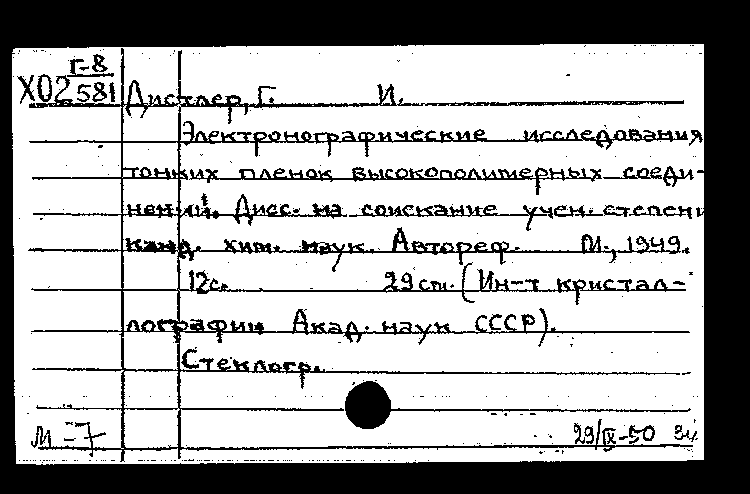 Г-8
Х02 581 Дистлер, Г. И.
Электронографические исследования
тонких пленок высокополимерных соеди-
нений. Дисс. на соискание учен. степени
канд. хим. наук. Автореф. М., 1949.
12с. 29 см. (Ин-т кристал-
лографии Акад. наук СССР).
Стеклогр.
М-7 29/IX-50